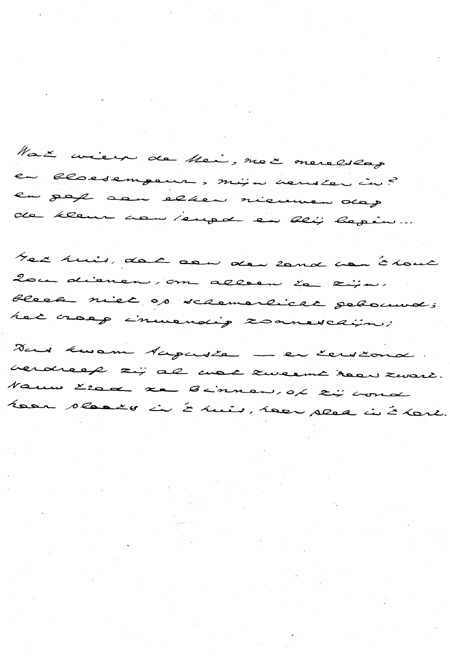 Wat wierp de Mei, met merelslag
en bloesemgeur, mijn venster in?
en gaf aan elken nieuwen dag
de kleur van jeugd en blij begin...
Het huis, dat aan den rand van 't hout
zou dienen, om alleen te zijn,
bleek niet op schemerlicht gebouwd;
het vroeg inwendig zonneschijn;
Dus kwam Augusta — en terstond
verdreef zij al wat zweemt naar zwart.
Nauw trad ze binnen, of zij vond
haar plaats in 't huis, haar plek in 't hart.